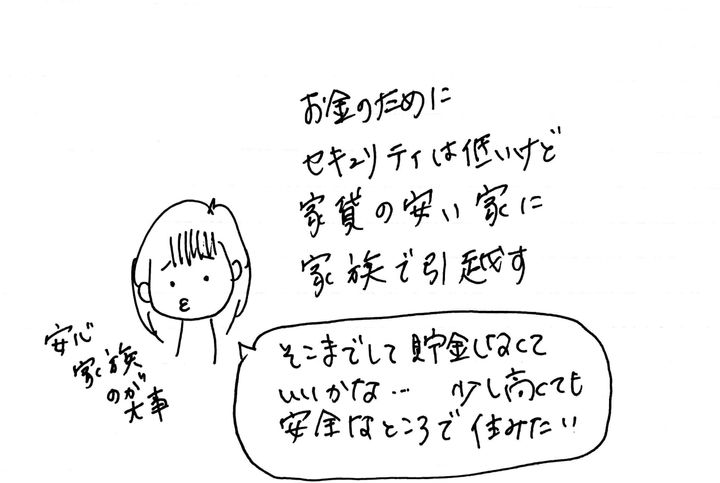 お金のために
セキュリティは低いけど
家賃の安い家に
家族で引越す
そこまでして貯金しなくて
いいかな… 少し高くても
安全なところで住みたい
安心
家族
のが
大事